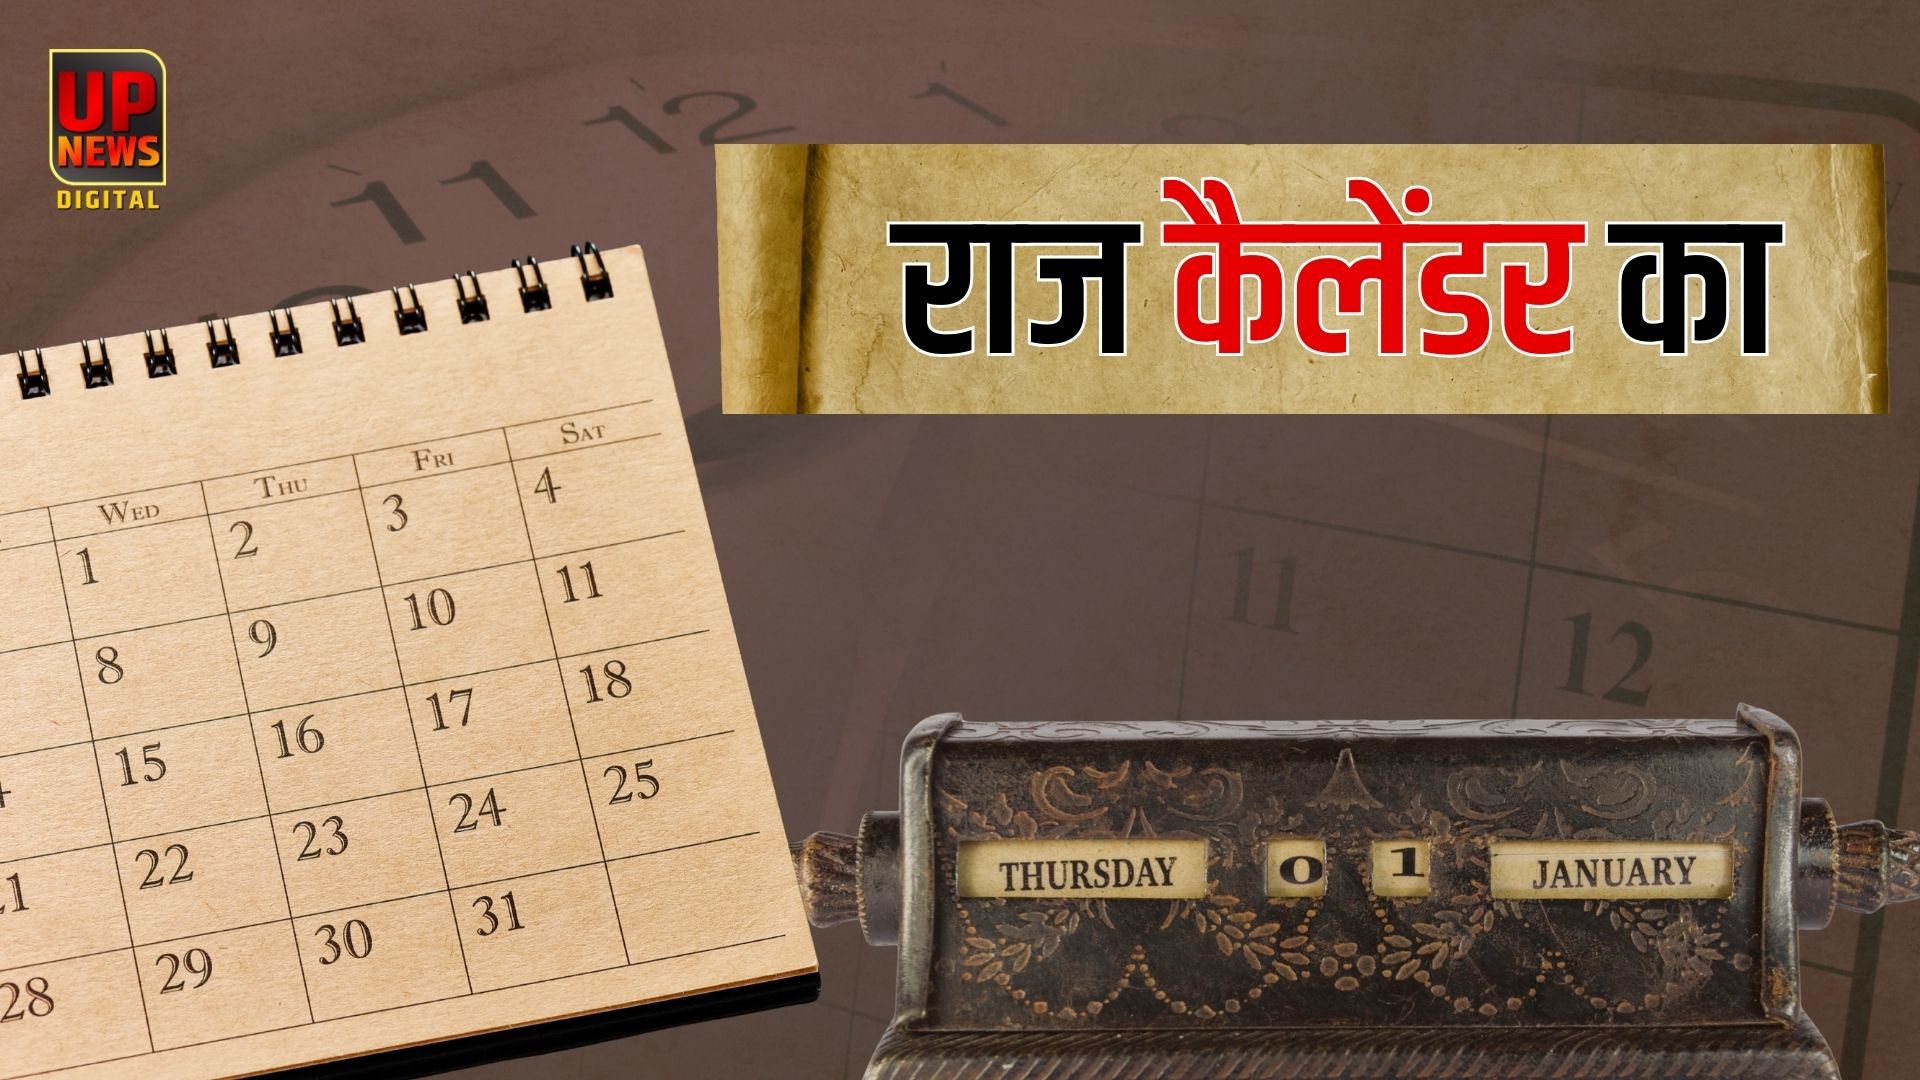 UP
NEWS
DIGITAL
11 12 1 2
राज कैलेंडर का
WED THU FRI SAT
1 2 3 4
8 9 10 11
15 16 17 18
22 23 24 25
28 29 30 31
11 12
THURSDAY 01 JANUARY